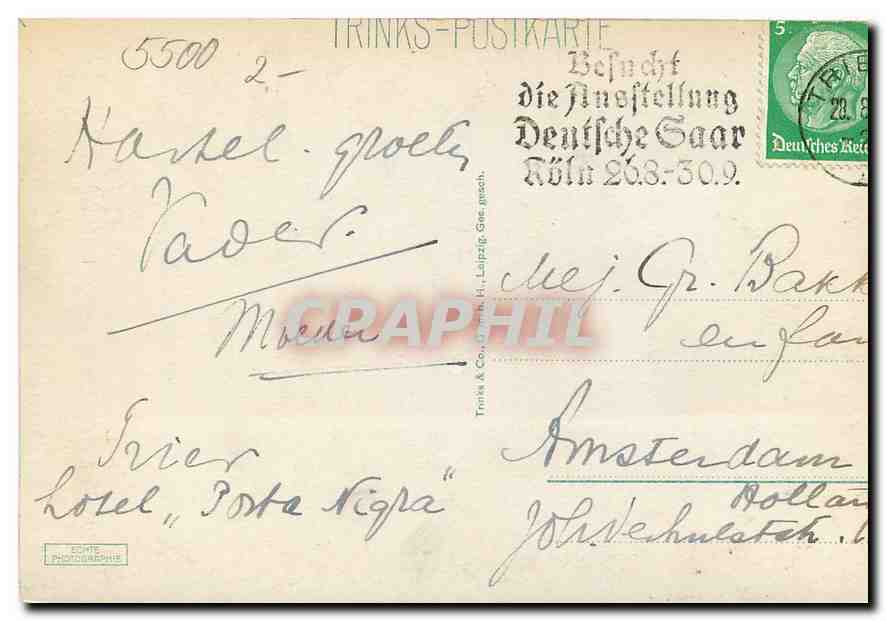 TRINKS-POSTKARTE
5500
2-
Besucht
die Ausstellung
Deutsche Saar
Köln 26.8.-30.9.
5
Deutsches Reic
TRIE
20.8
Hartel. groeten
Vader.
Moeder
Trier
hotel „Porta Nigra"
ECHTE
PHOTOGRAPHIE
Trinks & Co., G.m.b.H., Leipzig. Ges. gesch.
CPAPHIL
Mej. Gr. Bakk
en fam
Amsterdam
Hollan
Joh. Verhulststr.